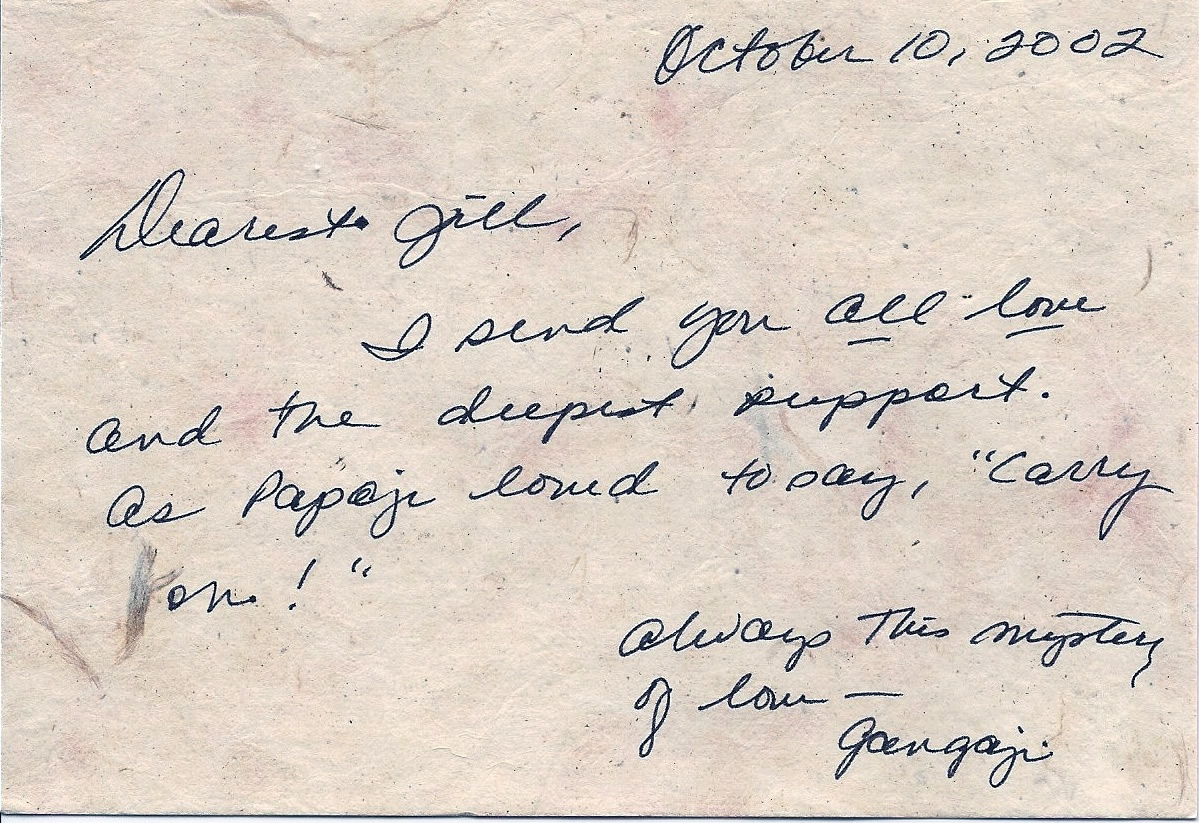 October 10, 2002
Dearest Jill,
I send you all love
and the deepest support.
As Papaji loved to say, "Carry
on!"
Always This mystery
of love —
Gangaji